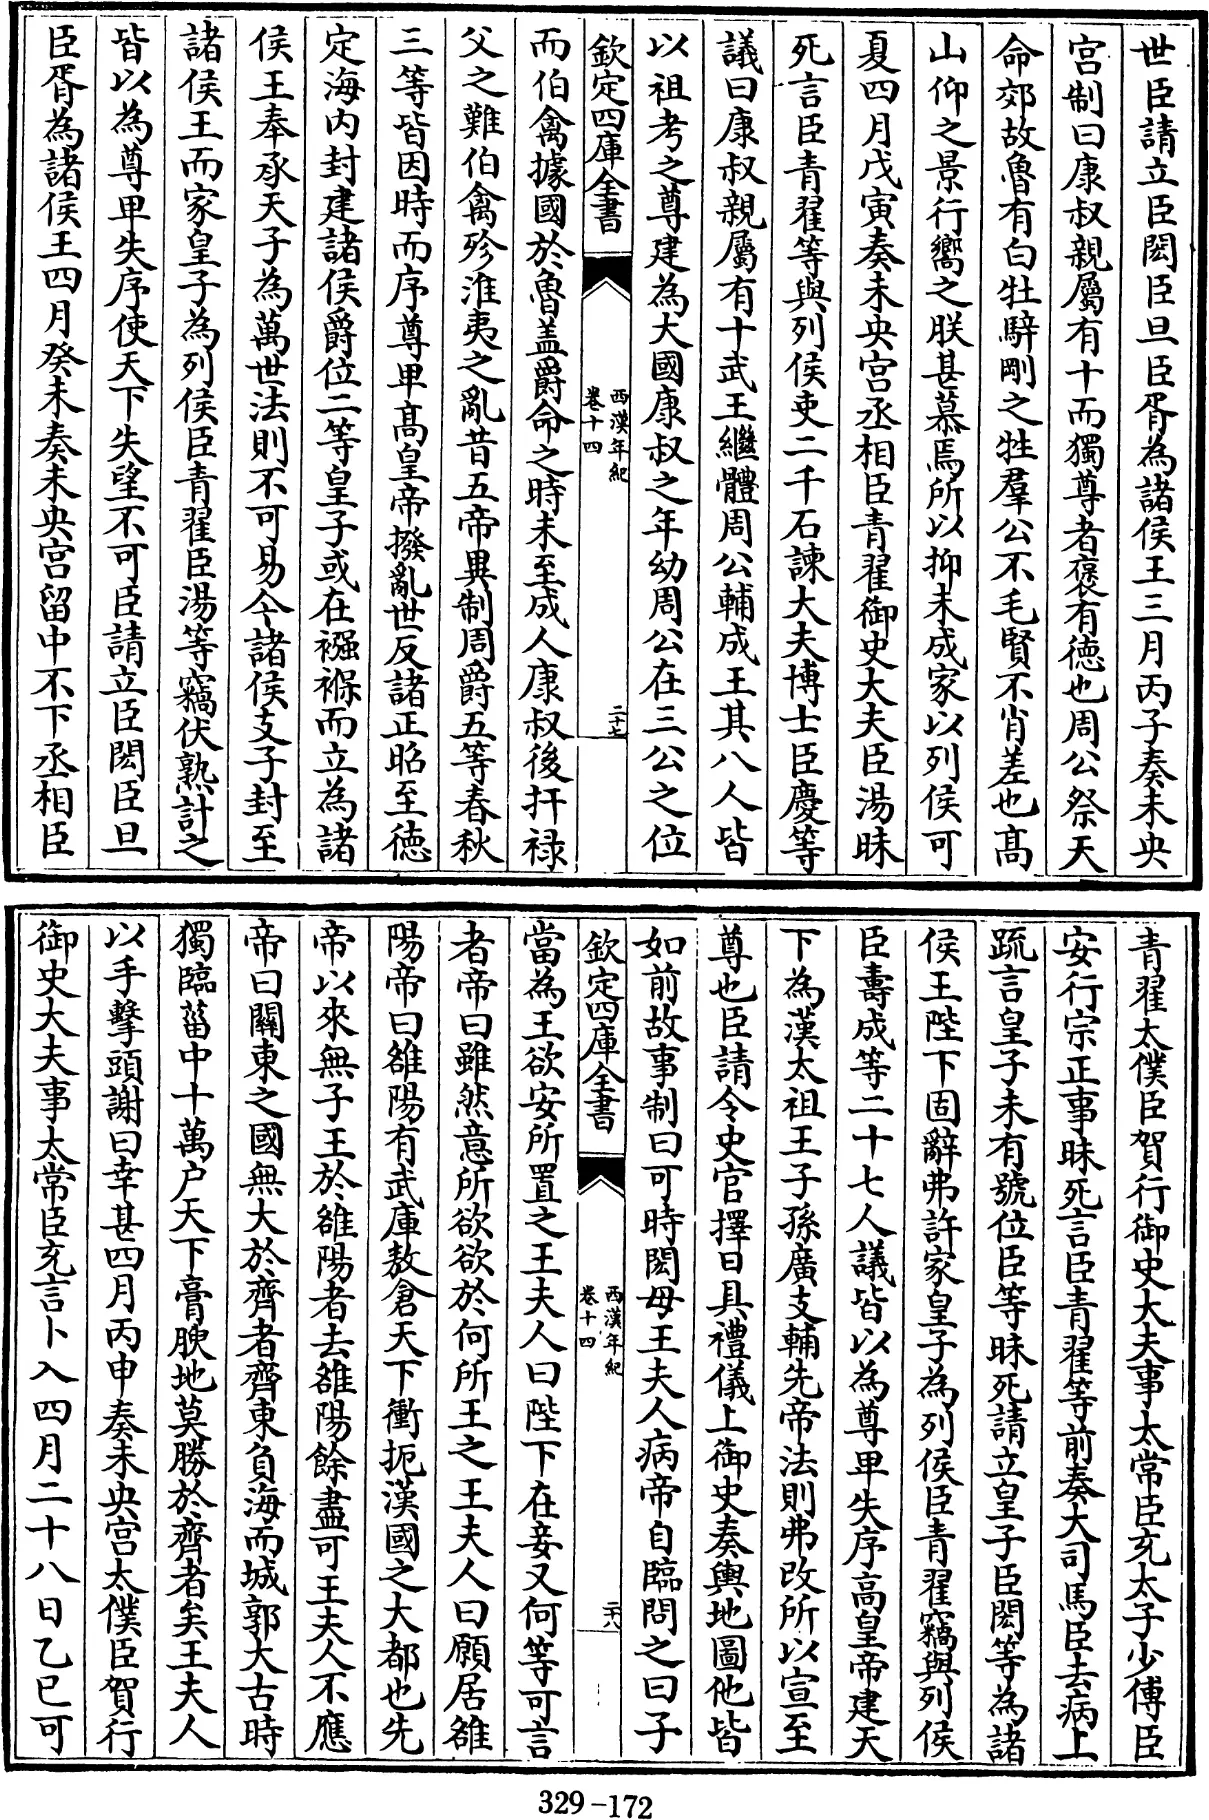 世臣請立臣閎臣旦臣胥為諸侯王三月丙子奏未央
宫制曰康叔親屬有十而獨尊者褒有徳也周公祭天
命郊故魯有白牡騂剛之牲羣公不毛賢不肖差也髙
山仰之景行嚮之朕甚慕焉所以抑未成家以列侯可
夏四月戊寅奏未央宫丞相臣青翟御史大夫臣湯昧
死言臣青翟等與列侯吏二千石諫大夫博士臣慶等
議曰康叔親屬有十武王繼體周公輔成王其八人皆
以祖考之尊建為大國康叔之年幼周公在三公之位
欽定四庫全書
西漢年紀
卷十四
二十七
而伯禽據國於魯盖爵命之時未至成人康叔後扞禄
父之難伯禽殄淮夷之亂昔五帝異制周爵五等春秋
三等皆因時而序尊卑髙皇帝撥亂世反諸正昭至徳
定海内封建諸侯爵位二等皇子或在襁褓而立為諸
侯王奉承天子為萬世法則不可易今諸侯支子封至
諸侯王而家皇子為列侯臣青翟臣湯等竊伏熟計之
皆以為尊卑失序使天下失望不可臣請立臣閎臣旦
臣胥為諸侯王四月癸未奏未央宫留中不下丞相臣
青翟太僕臣賀行御史大夫事太常臣充太子少傅臣
安行宗正事昧死言臣青翟等前奏大司馬臣去病上
疏言皇子未有號位臣等昧死請立皇子臣閎等為諸
侯王陛下固辭弗許家皇子為列侯臣青翟竊與列侯
臣壽成等二十七人議皆以為尊卑失序高皇帝建天
下為漢太祖王子孫廣支輔先帝法則弗改所以宣至
尊也臣請令史官擇日具禮儀上御史奏輿地圖他皆
如前故事制曰可時閎母王夫人病帝自臨問之曰子
欽定四庫全書
西漢年紀
卷十四
二十八
當為王欲安所置之王夫人曰陛下在妾又何等可言
者帝曰雖然意所欲欲於何所王之王夫人曰願居雒
陽帝曰雒陽有武庫敖倉天下衝扼漢國之大都也先
帝以來無子王於雒陽者去雒陽餘盡可王夫人不應
帝曰關東之國無大於齊者齊東負海而城郭大古時
獨臨菑中十萬户天下膏腴地莫勝於齊者矣王夫人
以手擊頭謝曰幸甚四月丙申奏未央宫太僕臣賀行
御史大夫事太常臣充言卜入四月二十八日乙巳可
329-172